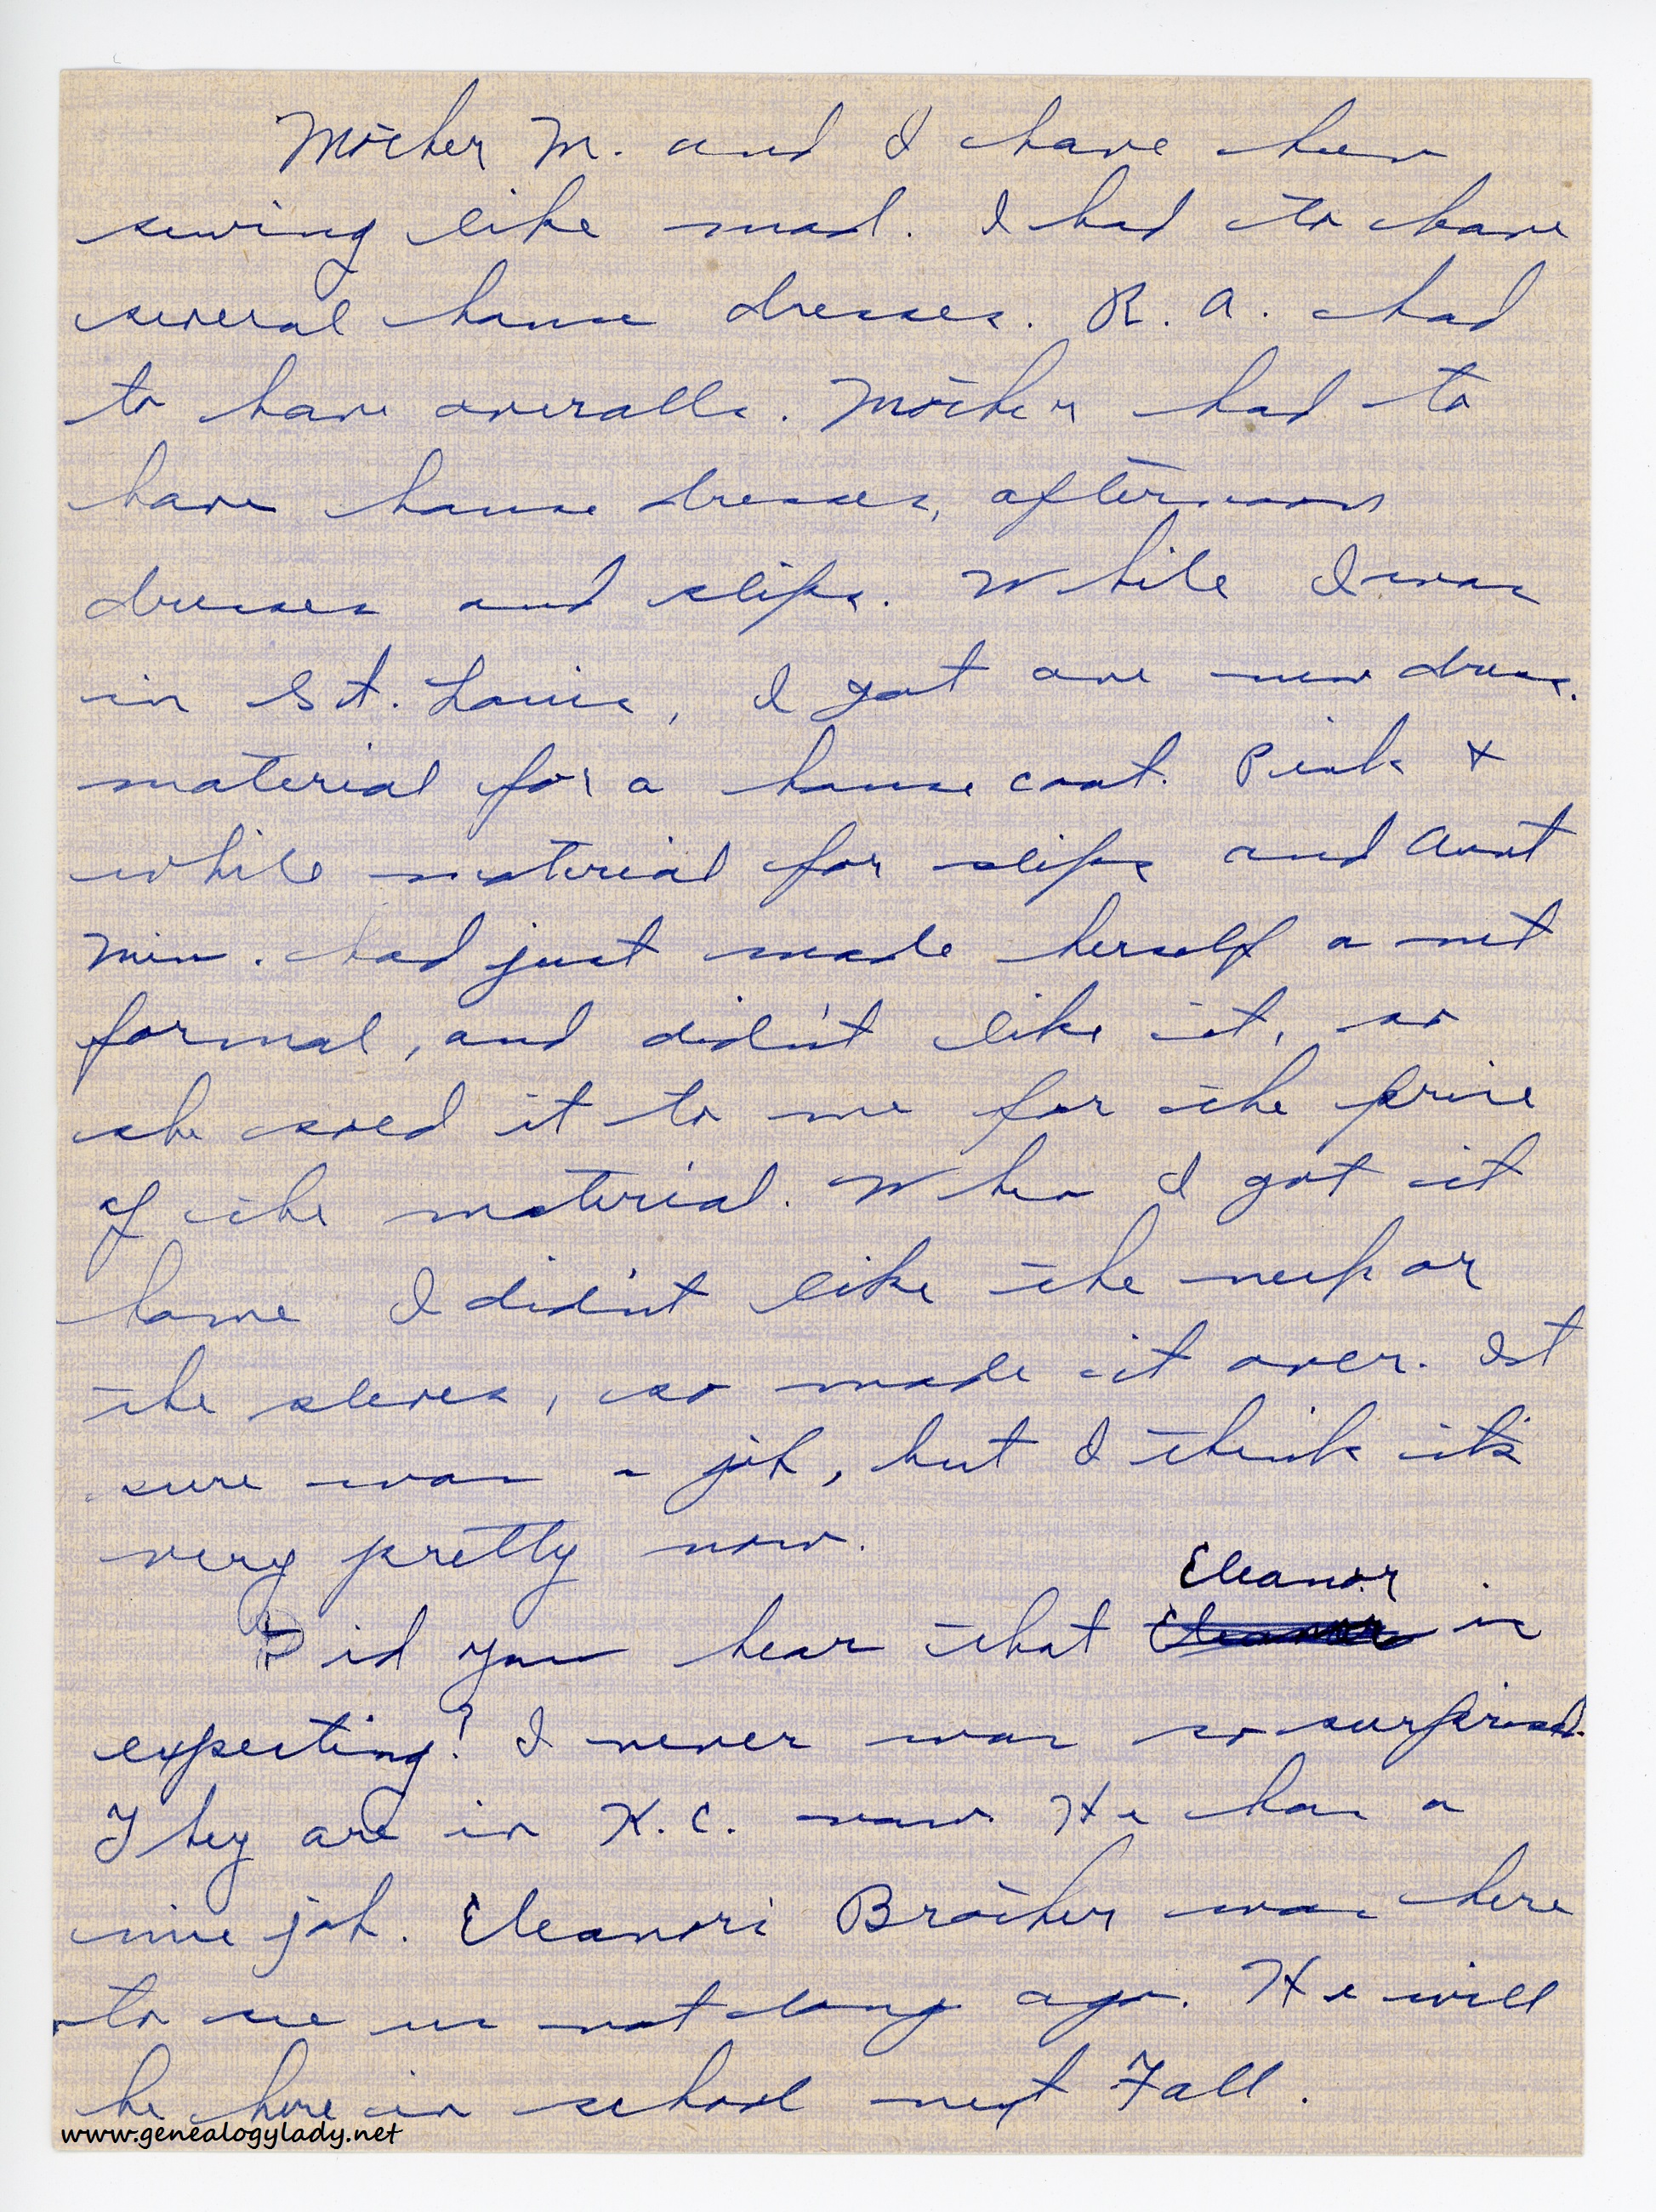 Mother M. and I have been
sewing like mad. I had to have
several house dresses. R. A. had
to have overalls. Mother had to
have house dresses, afternoon
dresses and slips. While I was
in St. Louis, I got one new dress.
material for a house coat. Pink &
white material for slips and Aunt
Min. had just made herself a net
formal, and didn't like it, so
she sold it to me for the price
of the material. When I got it
home I didn't like the neck or
the sleves, so made it over. It
sure was a job, but I think it's
very pretty now.
Did you hear that Eleanor is
expecting? I never was so surprised.
They are in K.C. now. He has a
nice job. Eleanors Brother was here
to see us not long ago. He will
be here in school next Fall.
www.genealogylady.net